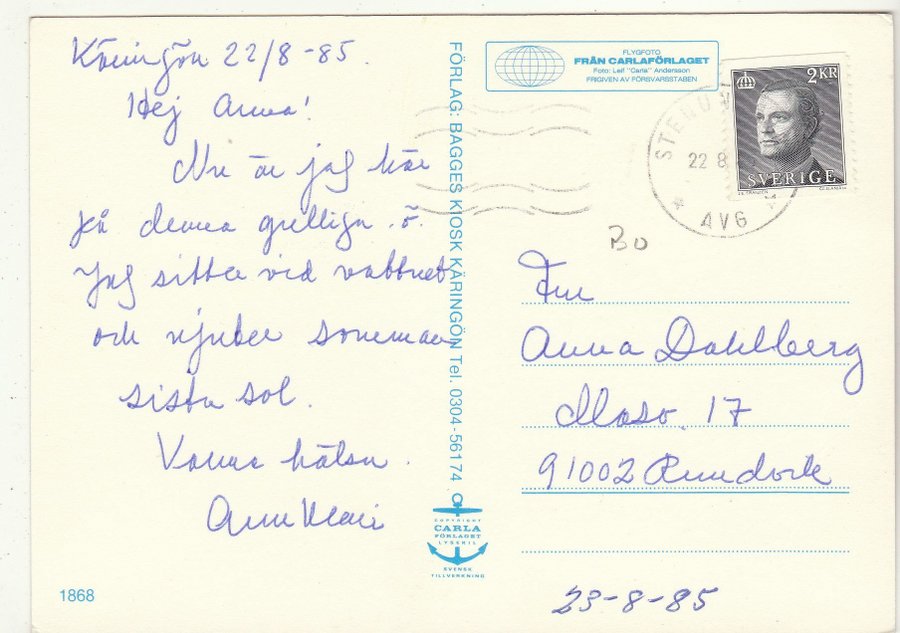 Käringön 22/8-85.
Hej Anna!
Nu är jag här
på denna gulliga ö.
Jag sitter vid vattnet
och njuter sommarens
sista sol.
Varma hälsn.
AnnMari
1868
FÖRLAG: BAGGES KIOSK KÄRINGÖN Tel. 0304-56174
COPYRIGHT
CARLA
FÖRLAGET
LYSEKIL
SVENSK
TILLVERKNING
FLYGFOTO
FRÅN CARLAFÖRLAGET
Foto: Leif "Carla" Andersson
FRIGIVEN AV FÖRSVARSSTABEN
2 KR
SVERIGE
22 8
AVG
Bo
Fru
Anna Dahlberg
17
91002
23-8-85